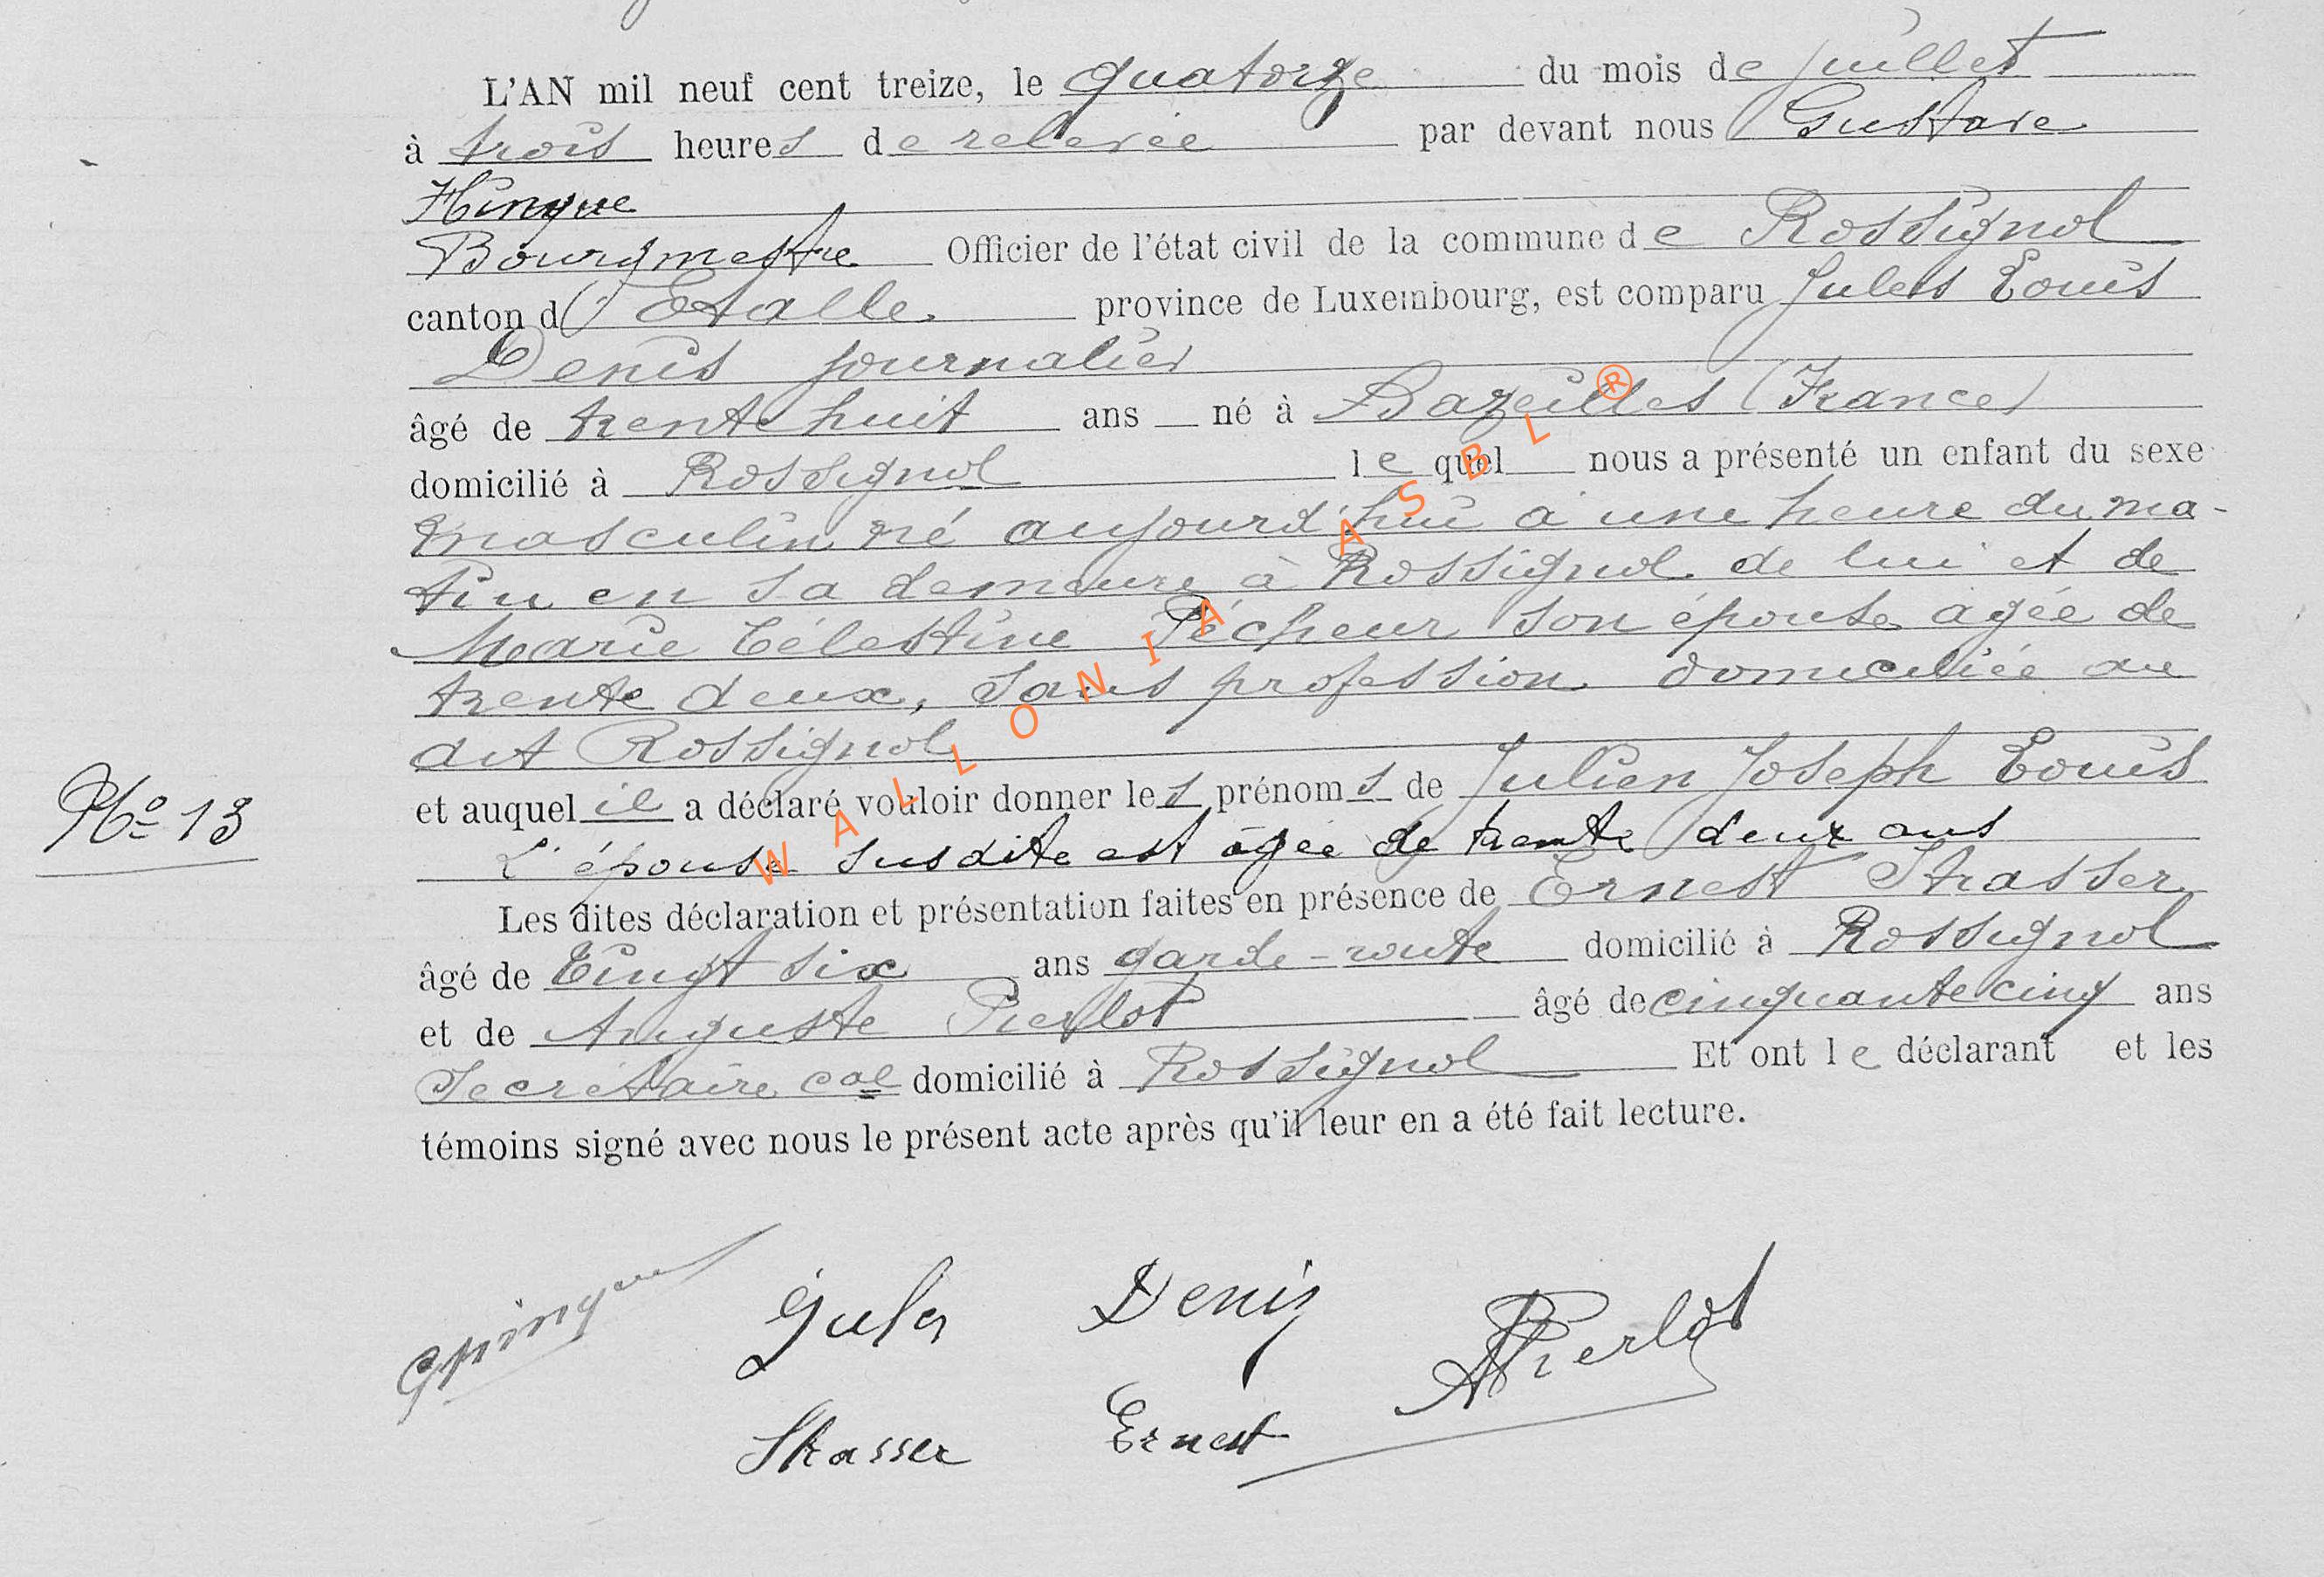 L'AN mil neuf cent treize, le quatorze du mois de juillet
à trois heures de relevée par devant nous Gustave
Hinque
Bourgmestre Officier de l'état civil de la commune de Rossignol
canton d'Etalle province de Luxembourg, est comparu Jules Louis
Denis journalier
âgé de trente huit ans né à Bazeilles (France)
domicilié à Rossignol lequel nous a présenté un enfant du sexe
masculin né aujourd'hui à une heure du ma-
tin en sa demeure à Rossignol de lui et de
Marie Célestine Pécheur son épouse agée de
trente deux, sans profession domiciliée au
dit Rossignol
et auquel il a déclaré vouloir donner les prénoms de Julien Joseph Louis
L'épouse susdite est âgée de trente deux ans
Nº 13
Les dites déclaration et présentation faites en présence de Ernest Strasser
âgé de Vingt six ans garde-route domicilié à Rossignol
et de Auguste Pierlot âgé de cinquante cinq ans
Secrétaire cal domicilié à Rossignol Et ont le déclarant et les
témoins signé avec nous le présent acte après qu'il leur en a été fait lecture.
GHinque Jules Denis APierlot
Strasser Ernest
WALLONIA ASBL ®